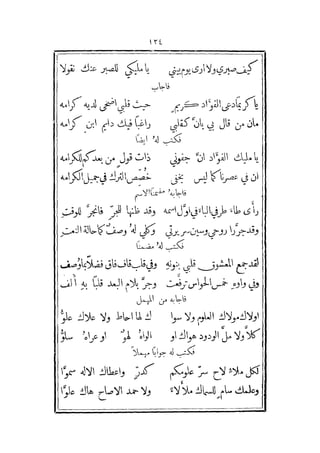 ١٣٤
كيف صبري ولا ارى يوم بيني يا مليكي للصبر عنك نقولا
فاجاب
يا كريمًا دعى الفوَاد كريم حيث قلبي اضحى لديه كرامه
مان من قال بي بانَّ كقلبي راغبًا فيك دايم ابن كرامه
فكتب لهُ ايضًا
يا مليك الفوَاد انَّ جفوني ذات قول من بعدكم للكرامه
ان في عصرنا كما ليس يخفى خُصِّص الترك في جميل الكرامه
فاجابهُ مضمنًا الاسم
رأى طاء طرفي الباء في اوَّل اسمه وقد ظنها للجرِّ فانجرَّ للوقت
وقد جرَّوا روحي وسين سريرتي وكلي لهُ وصفٌ كما حالة النعت
فكتب لهُ مضمنًا
لقد جمع المعشوق قلبي بنونهِ وفي قلب قاف فاق فضلاً بما وصف
وفي واوهِ خمس الحواس ترفَّعت وجرَّ بلام البعد قلبًا بهِ أُلف
فاجابه من المهمل
اولاك مولاك العلوم ولا سوا ك لها احاط ولا علاك علوُّ
كلاَّ ولا ملَّ الودود هواك او الواهُ لهوٌ او عراهُ سلوُّ
فكتب له جوابًا مهملاً
لكل ملاءٍ لاح سرّ علومكم كدرّ واعطاك الاله سموَّا
وعلمك سامٍ للسماك ملاَّلاءً ولا حمد الاصلاح هاك علوَّا